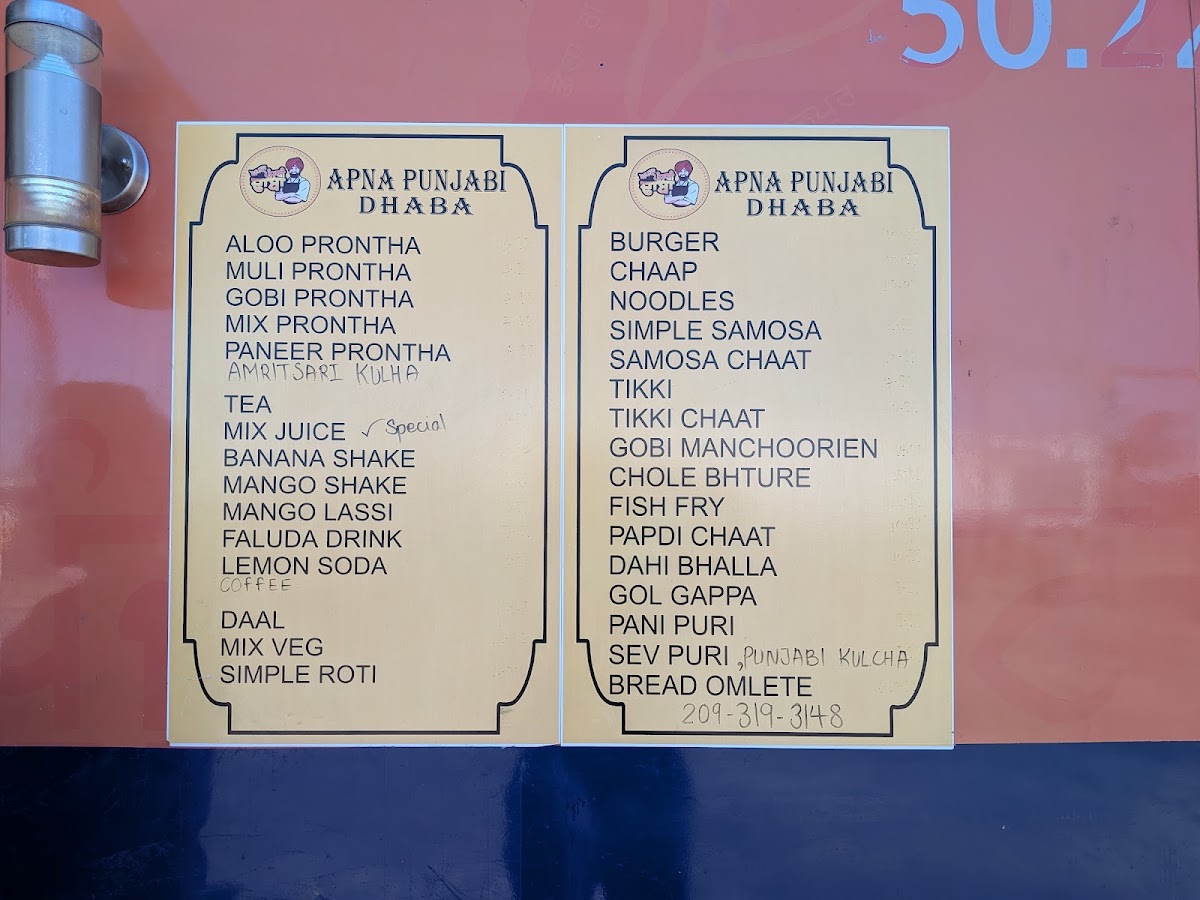 50.22
APNA PUNJABI
DHABA
ALOO PRONTHA
MULI PRONTHA
GOBI PRONTHA
MIX PRONTHA
PANEER PRONTHA
AMRITSARI KULHA
TEA
MIX JUICE ✓ Special
BANANA SHAKE
MANGO SHAKE
MANGO LASSI
FALUDA DRINK
LEMON SODA
COFFEE
DAAL
MIX VEG
SIMPLE ROTI
APNA PUNJABI
DHABA
BURGER
CHAAP
NOODLES
SIMPLE SAMOSA
SAMOSA CHAAT
TIKKI
TIKKI CHAAT
GOBI MANCHOORIEN
CHOLE BHTURE
FISH FRY
PAPDI CHAAT
DAHI BHALLA
GOL GAPPA
PANI PURI
SEV PURI , PUNJABI KULCHA
BREAD OMLETE
209-319-3148